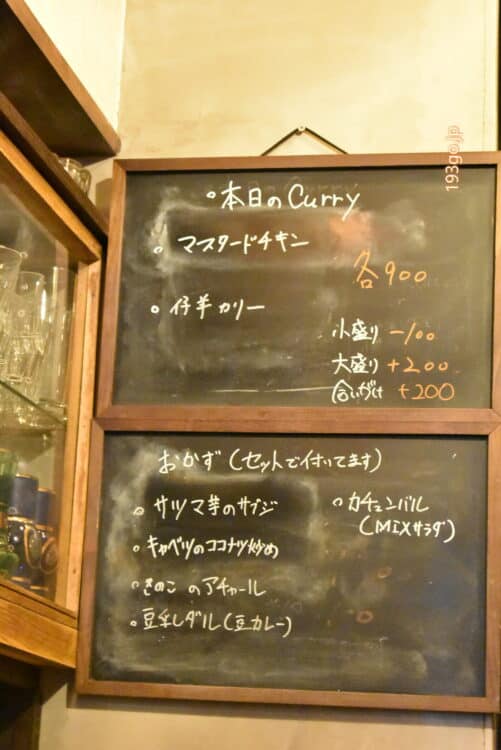 193go.jp
本日のCurry
マスタードチキン
各900
仔羊カリー
小盛り -100
大盛り +200
合いがけ +200
おかず(セットで付いてます)
サツマ芋のサブジ
カチュンバル
(MIXサラダ)
キャベツのココナツ炒め
きのこのアチャール
豆乳しダル(豆カレー)